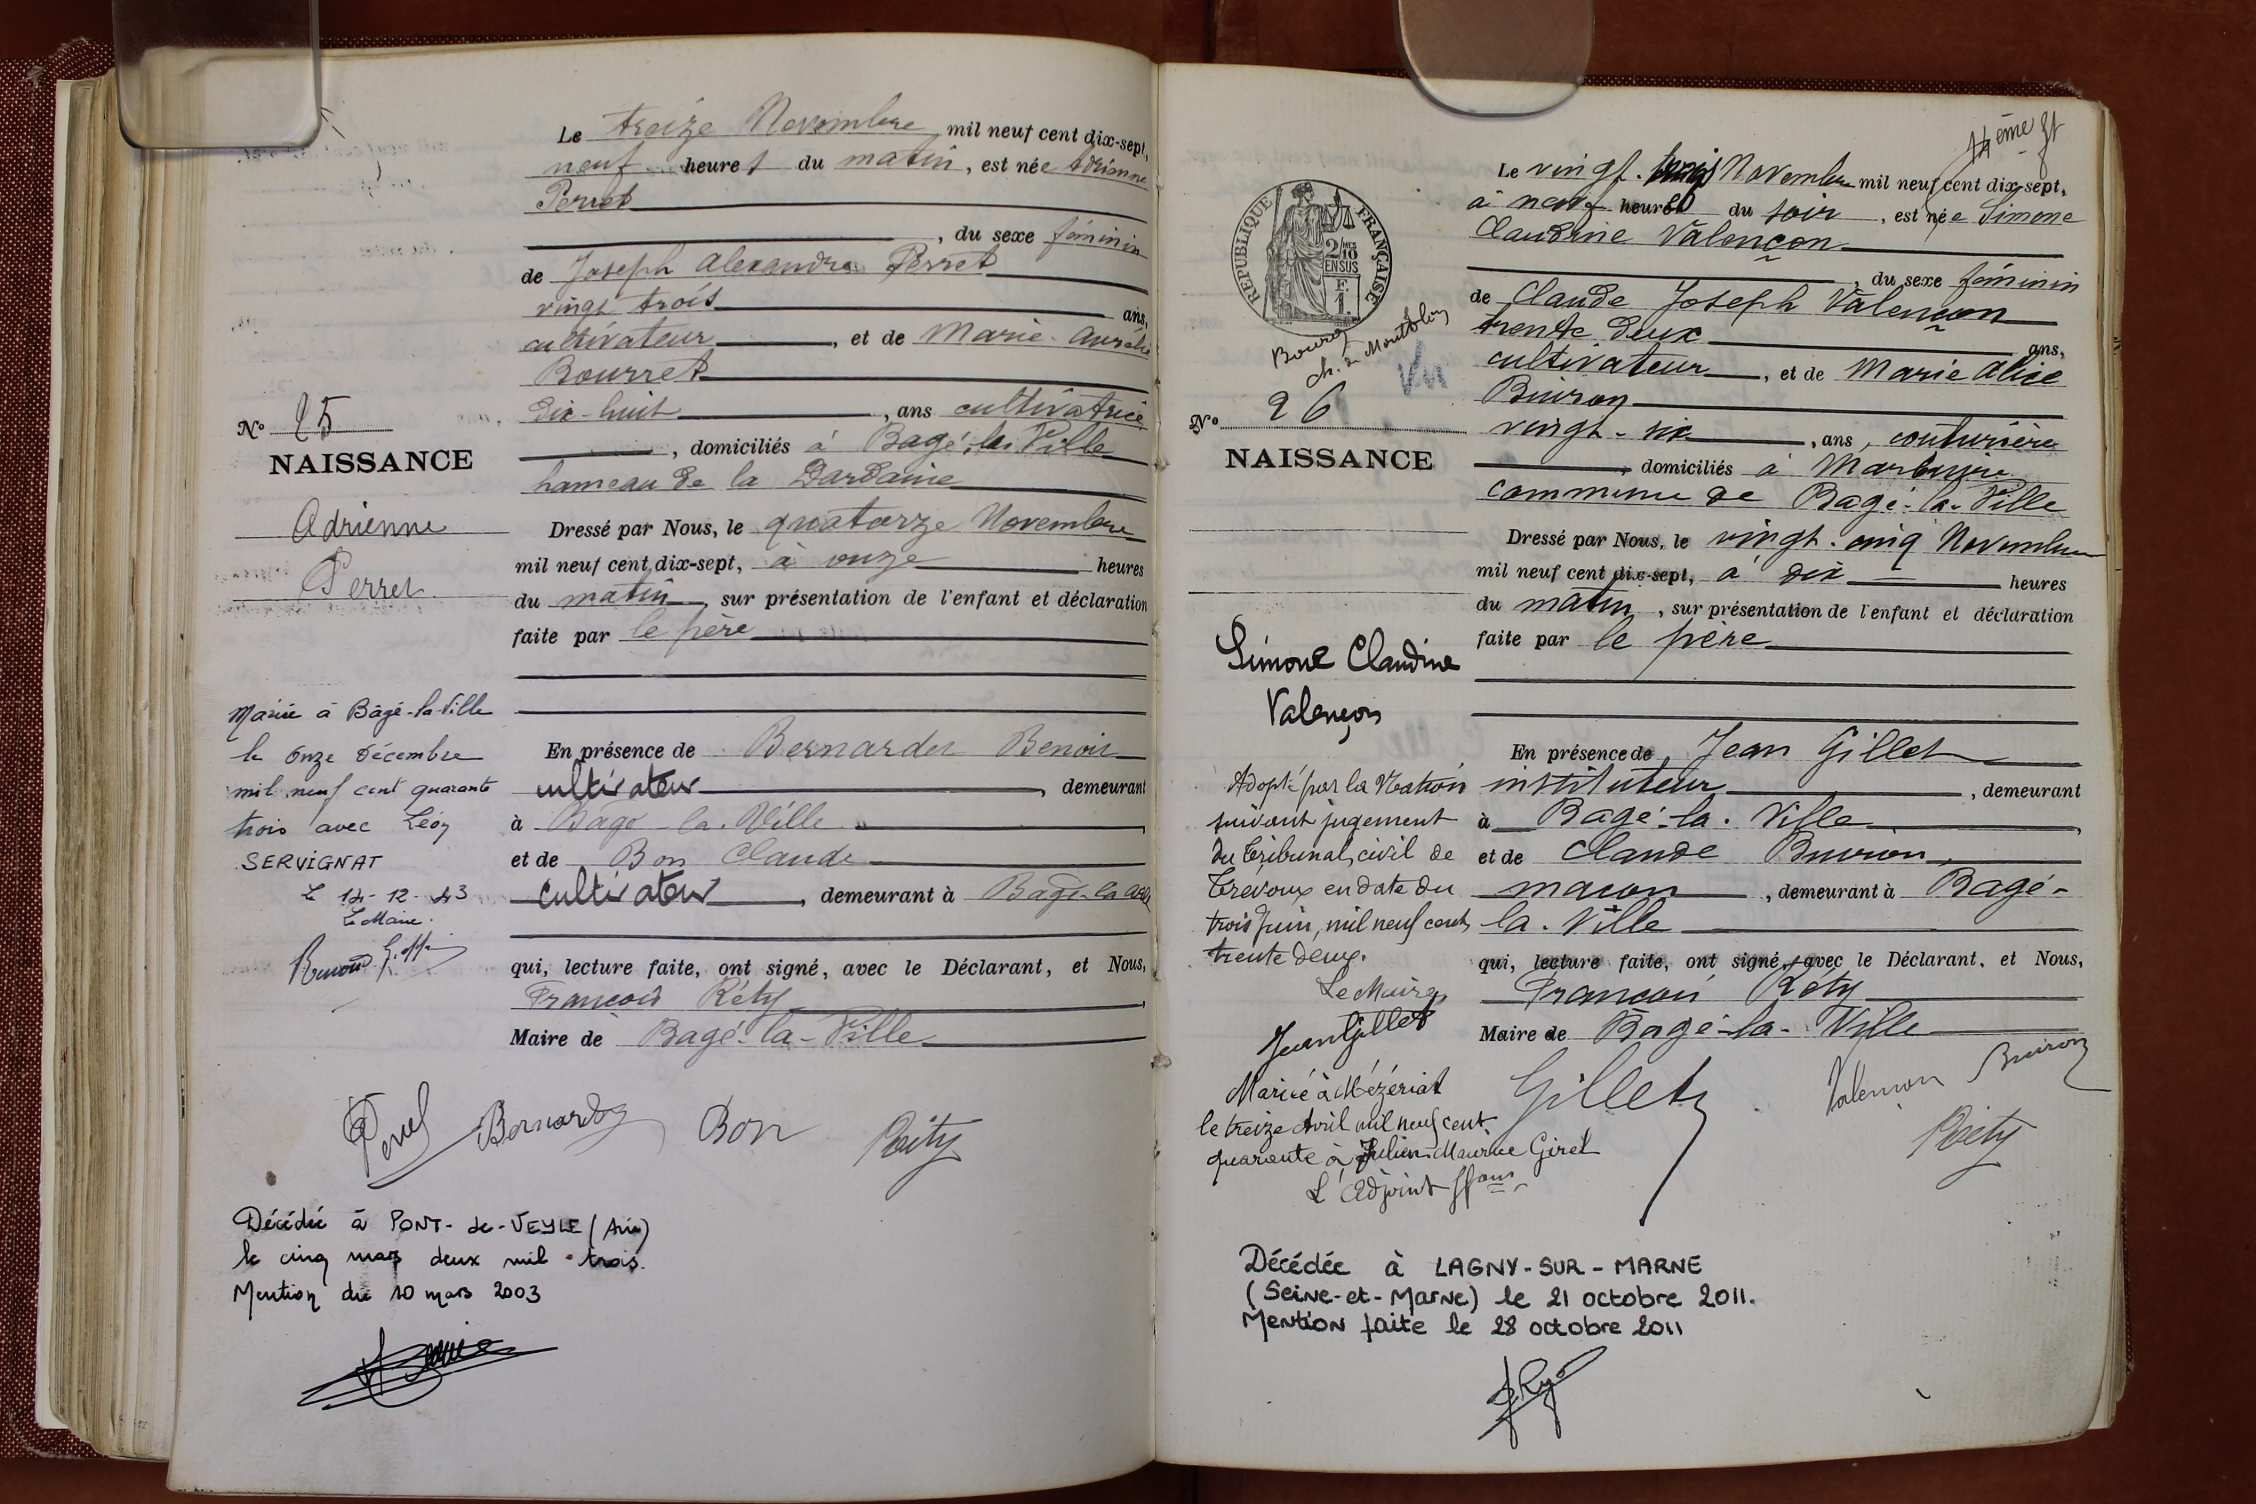 Le treize Novembre mil neuf cent dix-sept,
neuf heures du matin, est née Adrienne
Perret
, du sexe féminin
de Joseph Alexandre Perret
vingt trois ans,
cultivateur, et de Marie Aurélie
Bourret
dix-huit, ans cultivatrice
, domiciliés à Bagé-la-Ville
hameau de la Dardaine
Dressé par Nous, le quatorze Novembre
mil neuf cent dix-sept, à onze heures
du matin, sur présentation de l'enfant et déclaration
faite par le père
En présence de Bernardet Benoit
cultivateur, demeurant
à Bagé-la-Ville
et de Bon Claude
cultivateur, demeurant à Bagé-la-Ville
qui, lecture faite, ont signé, avec le Déclarant, et Nous,
François Réty
Maire de Bagé-la-Ville
No 25
NAISSANCE
Adrienne
Perret
Mariée à Bâgé-la-Ville
le onze décembre
mil neuf cent quarante
trois avec Léon
SERVIGNAT
Le 14-12-43
Le Maire.
Perret Bernardet Bon Réty
Décédée à PONT-de-VEYLE (Ain)
le cinq mars deux mil trois.
Mention du 10 mars 2003
14ème ft
Le vingt-trois Novembre mil neuf cent dix-sept,
à neuf heures du soir, est née Simone
Claudine Valençon
du sexe féminin
de Claude Joseph Valençon
trente deux ans,
cultivateur, et de Marie Alice
Buiron
vingt-six, ans, couturière
, domiciliés à Marbuire
commune de Bagé-la-Ville
Dressé par Nous, le vingt-cinq Novembre
mil neuf cent dix-sept, à dix heures
du matin, sur présentation de l'enfant et déclaration
faite par le père
En présence de Jean Gillet
instituteur, demeurant
à Bagé-la-Ville
et de Claude Buiron
maçon, demeurant à Bagé-
la-Ville
qui, lecture faite, ont signé, avec le Déclarant, et Nous,
François Réty
Maire de Bagé-la-Ville
REPUBLIQUE FRANÇAISE
2/10 MES
EN SUS
F.
1.
Bourg
Ch. de Montbleu
Vu
No 26
NAISSANCE
Simone Claudine
Valençon
Adopté par la Nation
suivant jugement
du tribunal civil de
Trévoux en date du
trois juin, mil neuf cent
trente deux.
Le Maire,
Jean Gillet
Mariée à Mézériat
le treize Avril mil neuf cent
quarante à Julien-Maurice Girel
L'Adjoint ffons
Gillet Valençon Buiron
Réty
Décédée à LAGNY-SUR-MARNE
(Seine-et-Marne) le 21 octobre 2011.
Mention faite le 28 octobre 2011